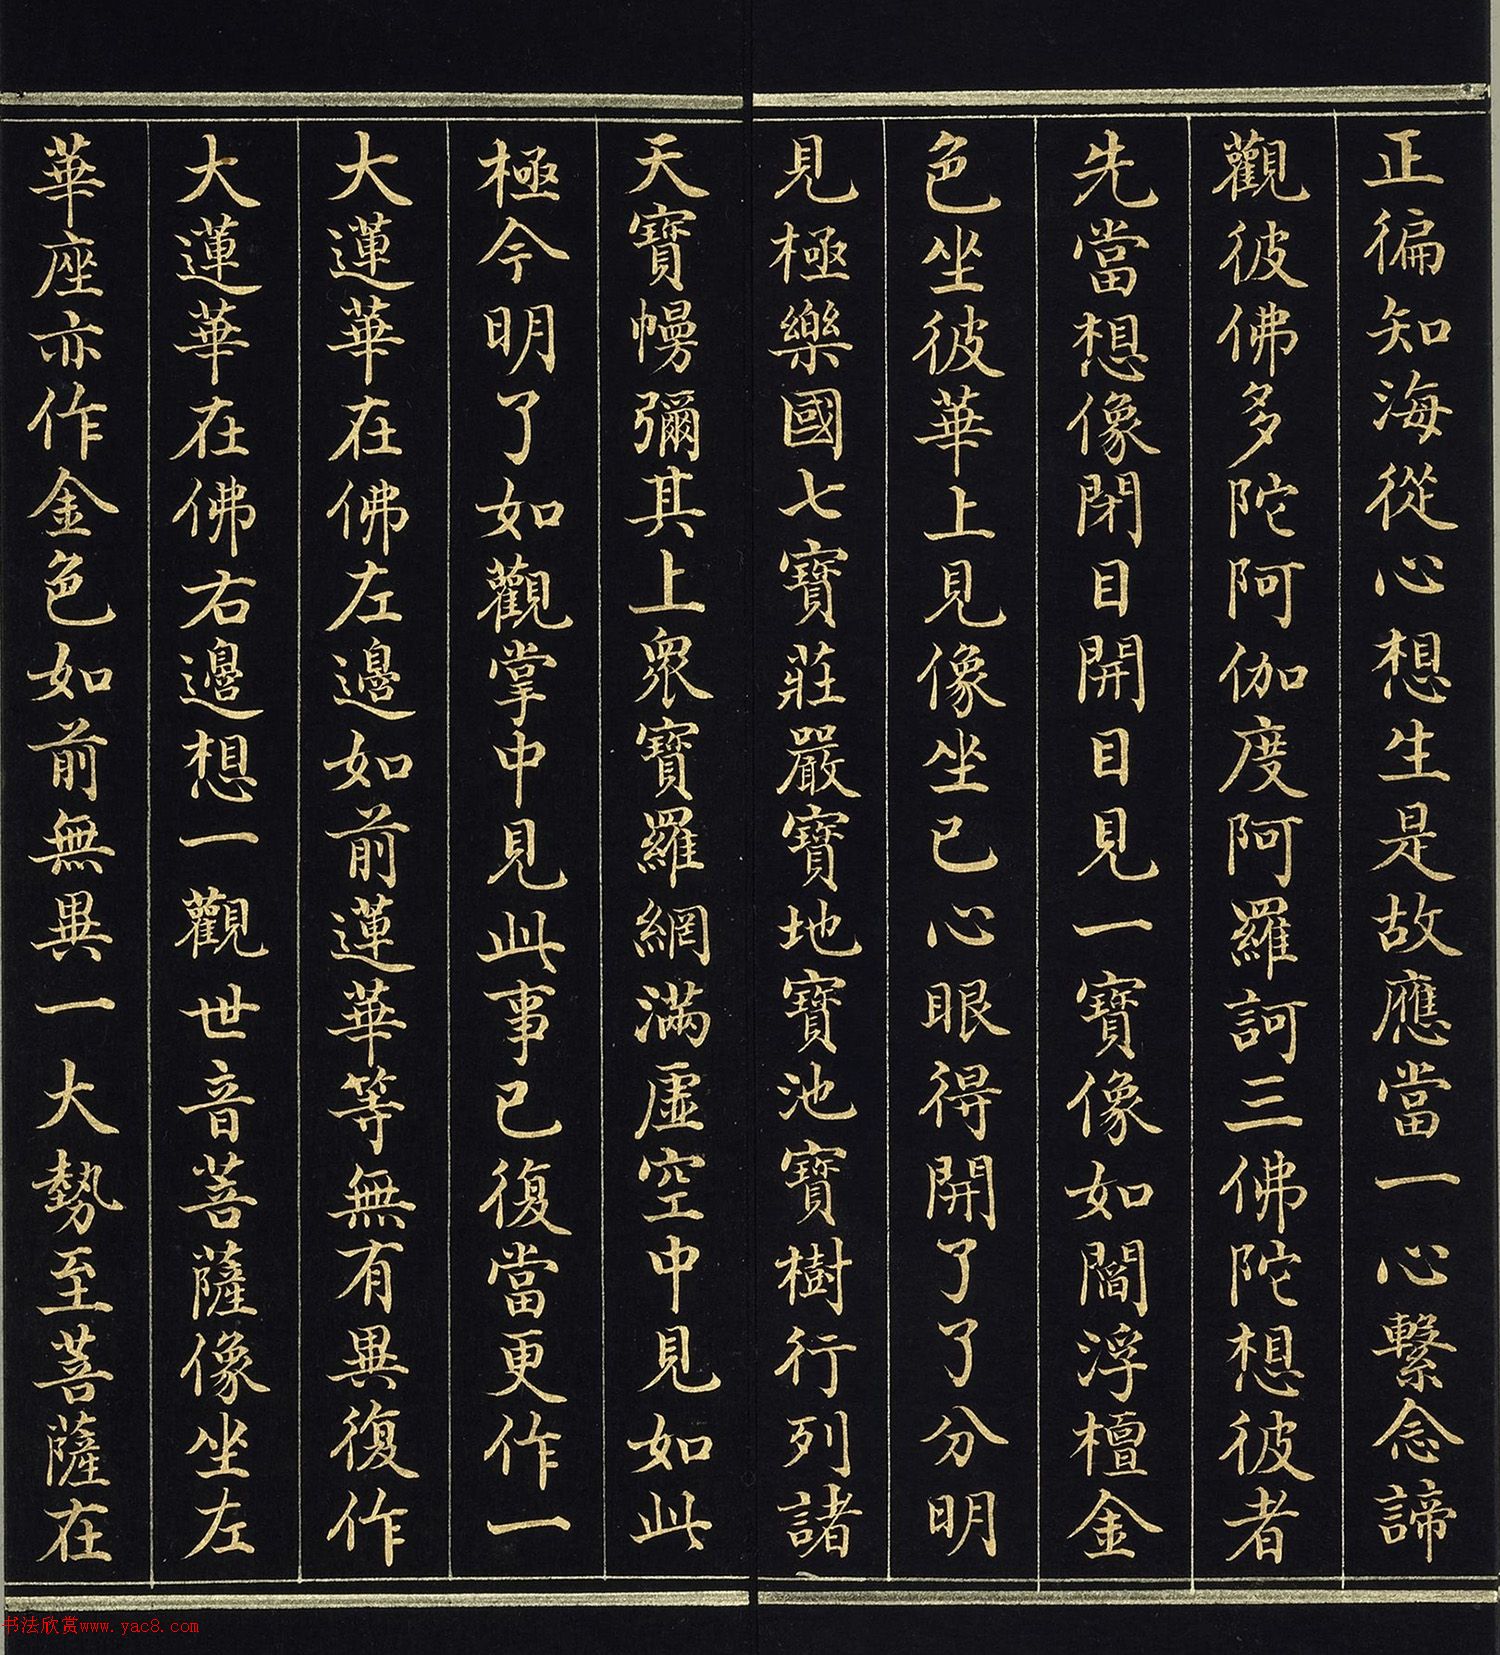 正徧知海從心想生是故應當一心繫念諦
觀彼佛多陀阿伽度阿羅訶三佛陀想彼者
先當想像閉目開目見一寶像如閻浮檀金
色坐彼華上見像坐已心眼得開了了分明
見極樂國七寶莊嚴寶地寶池寶樹行列諸
天寶幔彌其上眾寶羅網滿虛空中見如此
極令明了如觀掌中見此事已復當更作一
大蓮華在佛左邊如前蓮華等無有異復作
大蓮華在佛右邊想一觀世音菩薩像坐左
華座亦作金色如前無異一大勢至菩薩在
书法欣赏www.yac8.com